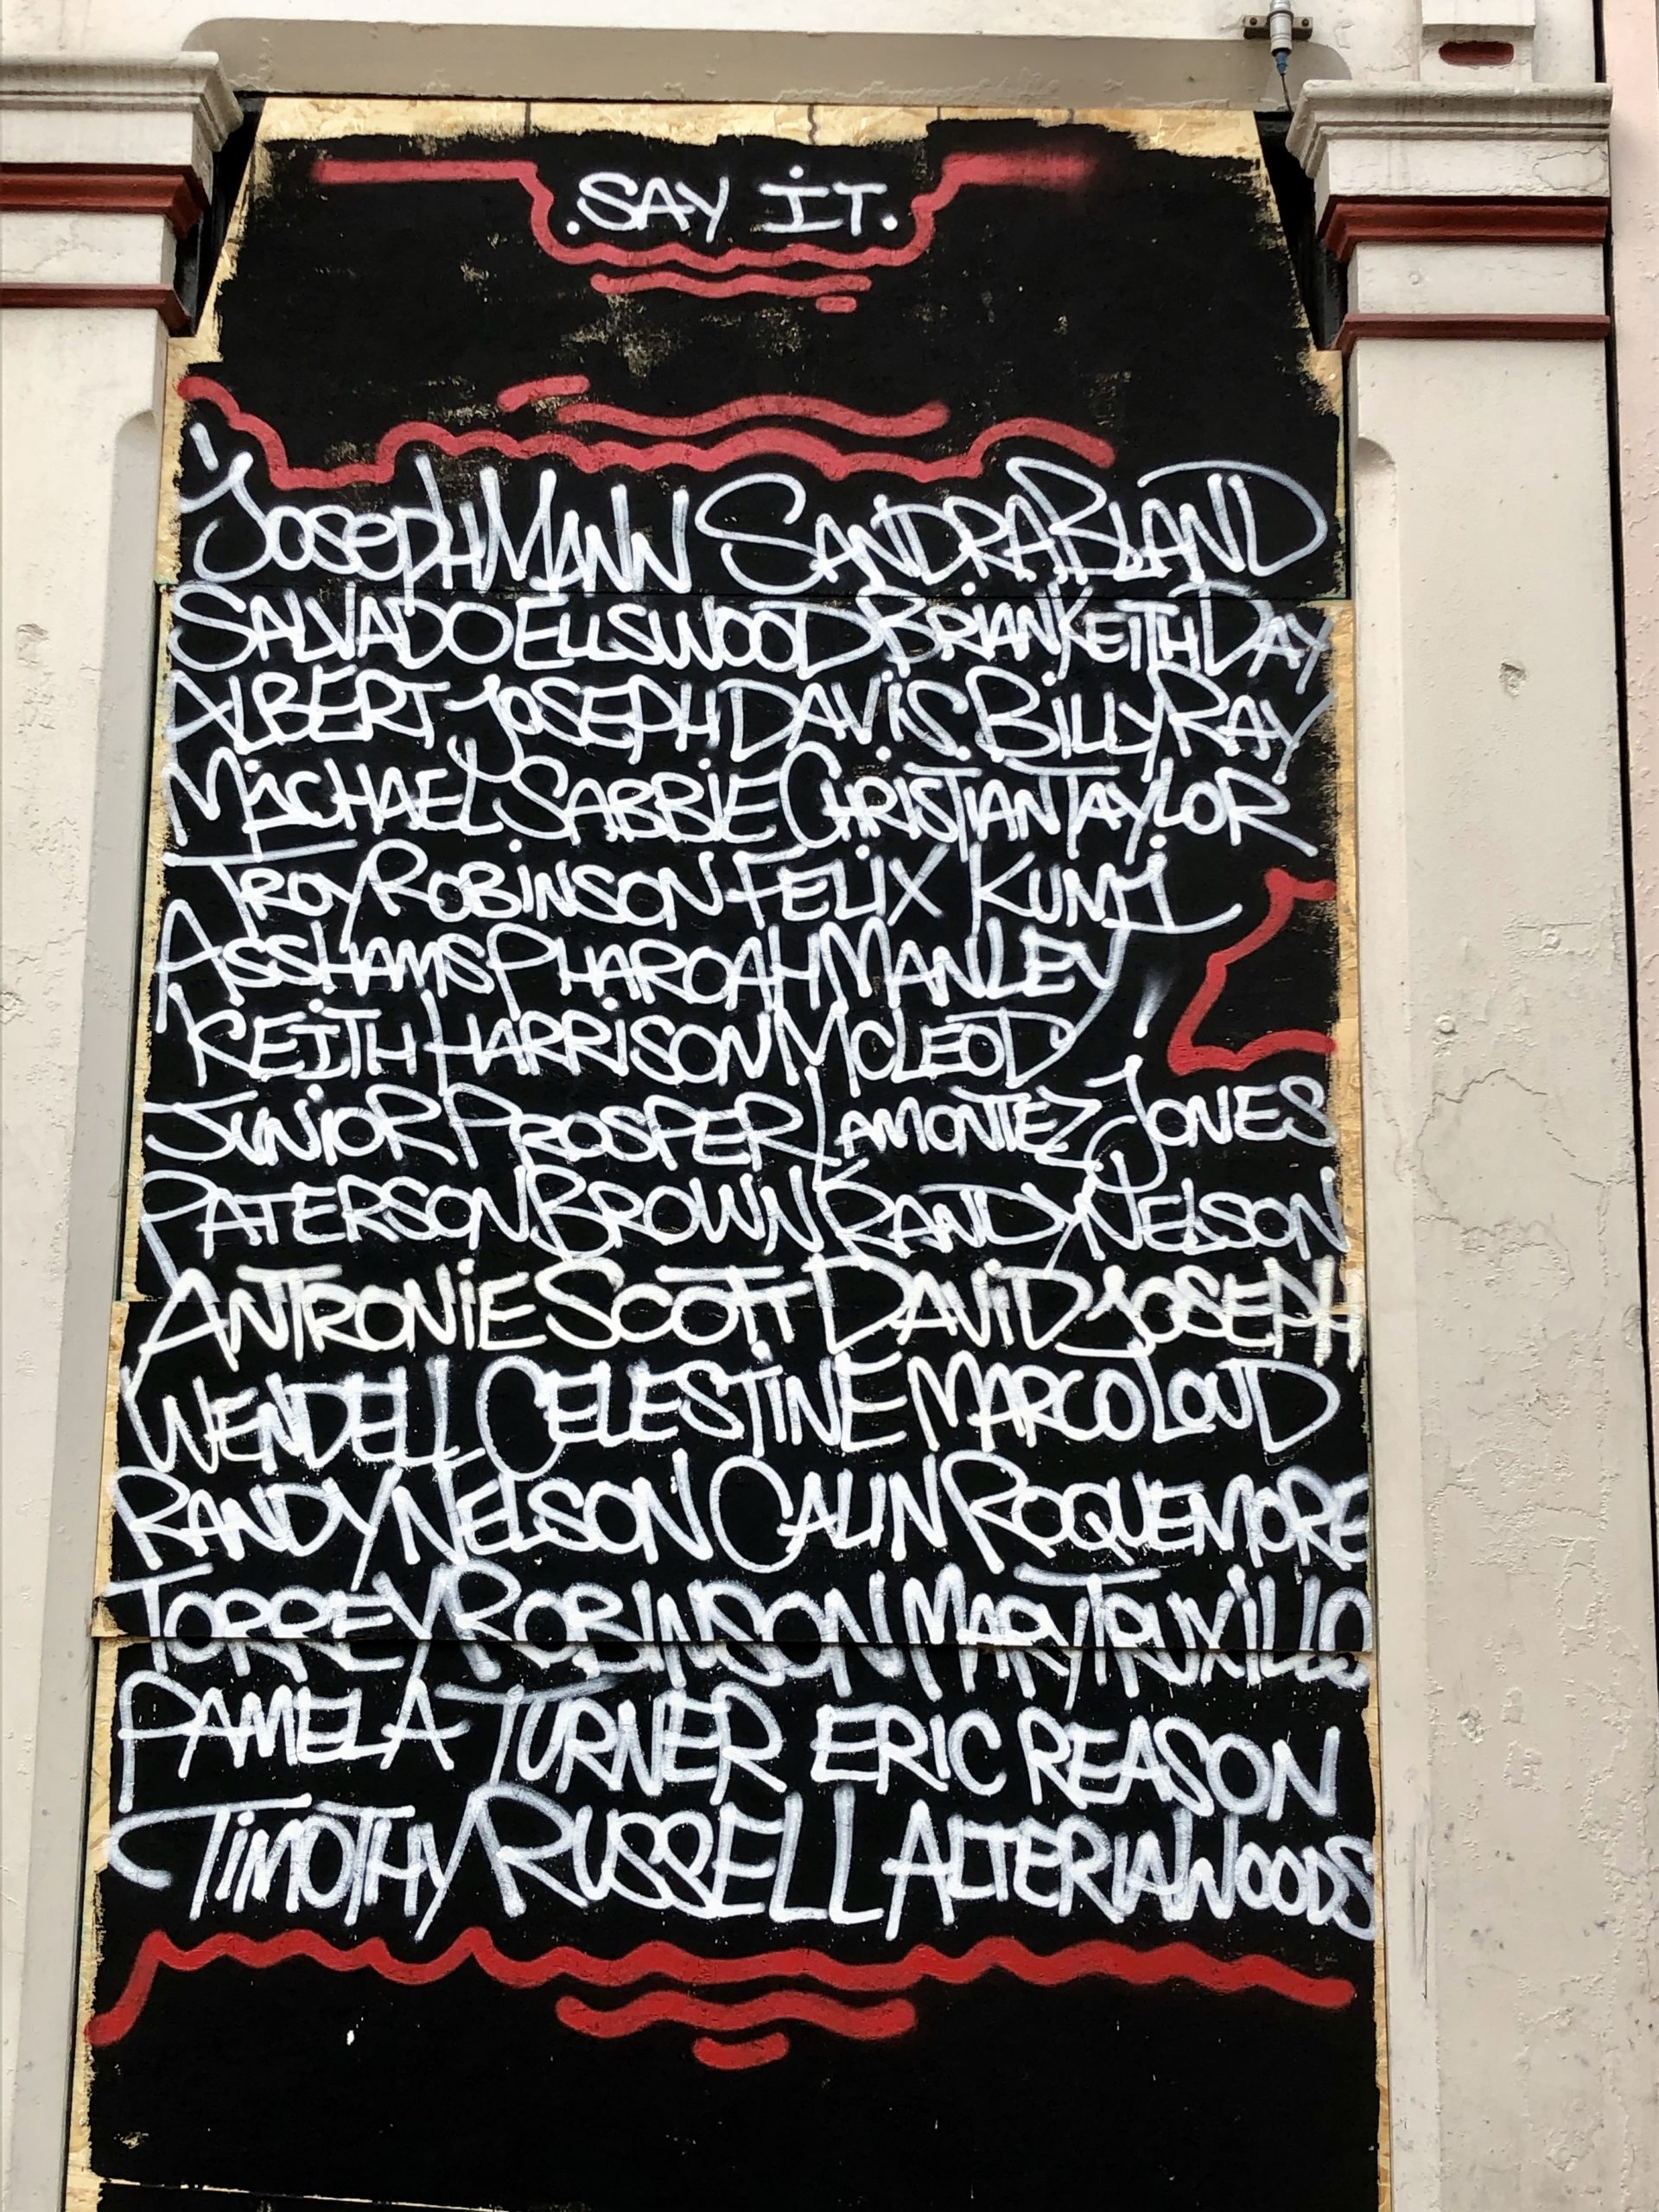 .SAY IT.
JOSEPH MANN SANDRA BLAND
SALVADO ELLSWOOD BRIAN KEITH DAY
ALBERT JOSEPH DAVIS. BILLY RAY
MICHAEL SABBIE CHRISTIAN TAYLOR
TROY ROBINSON FELIX KUMI
ASSHAMS PHAROAH MANLEY
KEITH HARRISON MCLEOD
JUNIOR PROSPER LAMONTEZ JONES
PATERSON BROWN RANDY NELSON
ANTRONIE SCOTT DAVID JOSEPH
WENDELL CELESTINE MARCO LOUD
RANDY NELSON CALIN ROQUEMORE
TORREY ROBINSON MARY TRUXILLO
PAMELA TURNER ERIC REASON
TIMOTHY RUSSELL ALTERIA WOODS